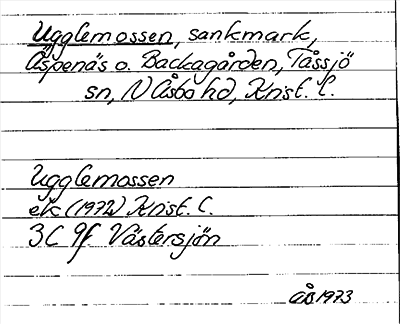 Ugglemossen, sankmark,
Äspenäs o. Backagården, Tåssjö
sn, N Åsbo hd, Krist. l.
Ugglemossen
ek (1972) Krist. l.
3C 9f Västersjön
ås 1973